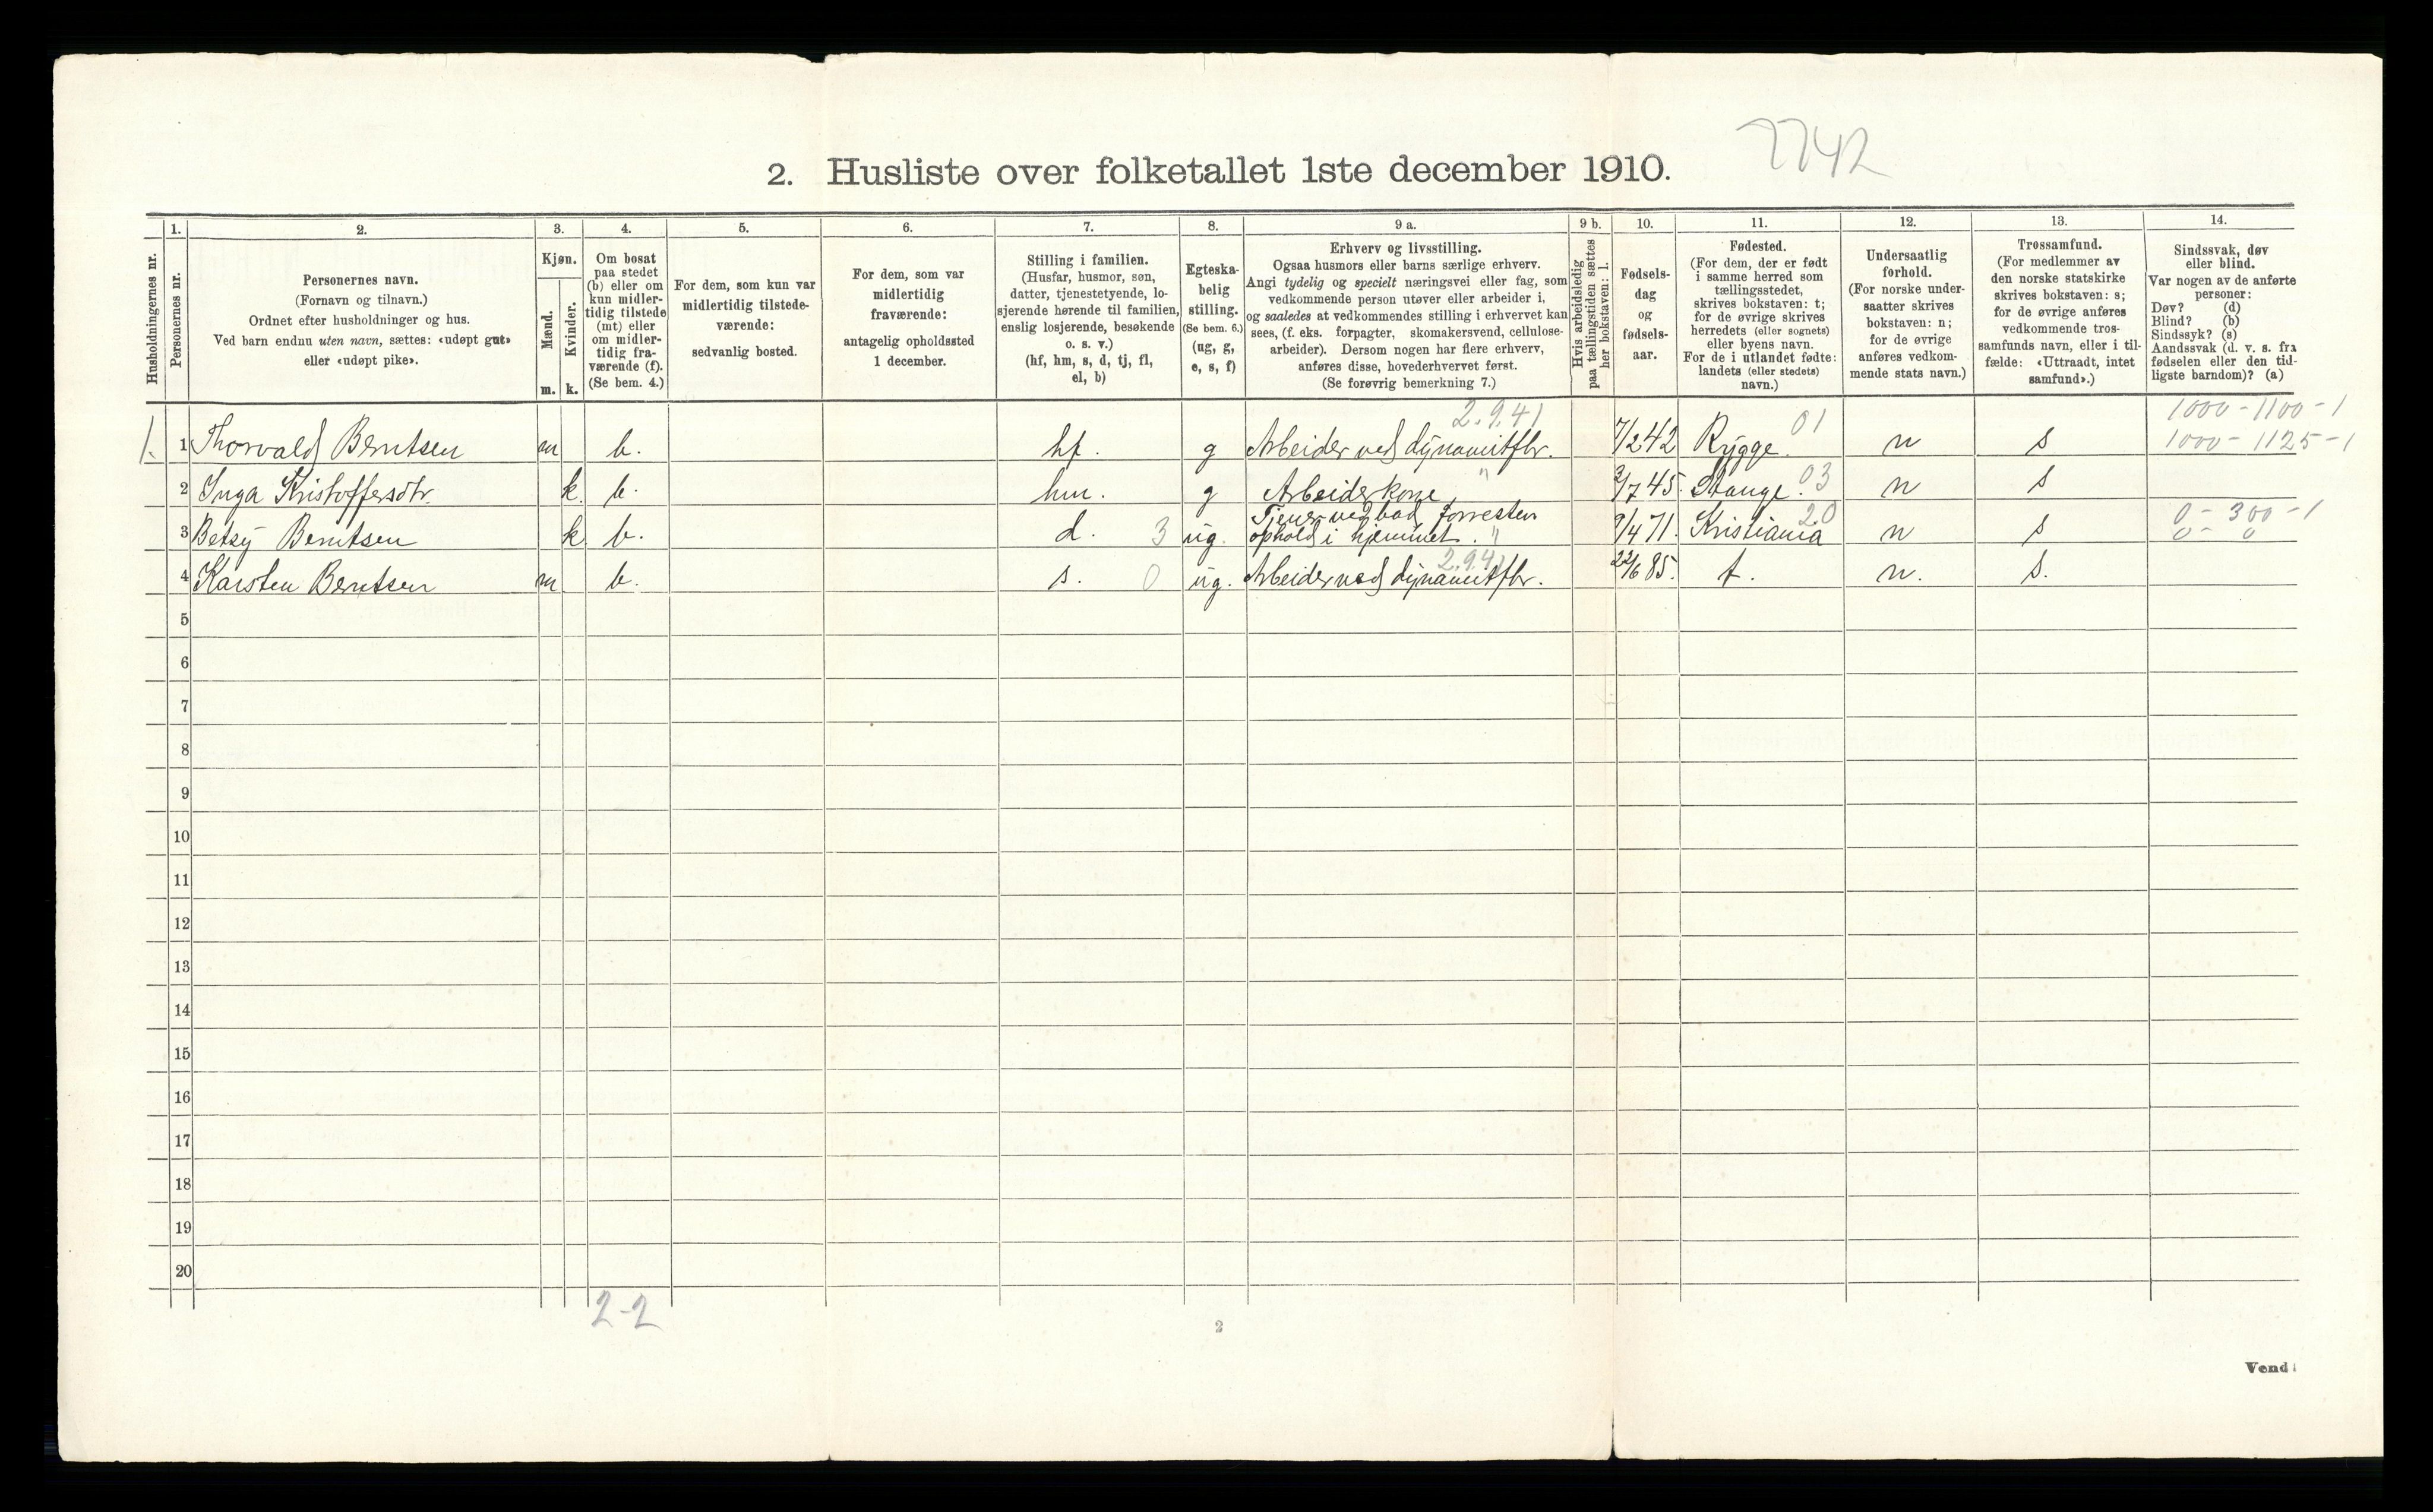 7742
2. Husliste over folketallet 1ste december 1910.
Husholdningernes nr.
1.
Personernes nr.
2.
Personernes navn.
(Fornavn og tilnavn.)
Ordnet efter husholdninger og hus.
Ved barn endnu uten navn, sættes: «udøpt gut»
eller «udøpt pike».
3.
Kjøn.
Mænd.
m.
Kvinder.
k.
4.
Om bosat
paa stedet
(b) eller om
kun midler-
tidig tilstede
(mt) eller
om midler-
tidig fra-
værende (f).
(Se bem. 4.)
5.
For dem, som kun var
midlertidig tilstede-
værende:
sedvanlig bosted.
6.
For dem, som var
midlertidig
fraværende:
antagelig opholdssted
1 december.
7.
Stilling i familien.
(Husfar, husmor, søn,
datter, tjenestetyende, lo-
sjerende hørende til familien,
enslig losjerende, besøkende
o. s. v.)
(hf, hm, s, d, tj, fl,
el, b)
8.
Egteska-
belig
stilling.
(Se bem. 6.)
(ug, g,
e, s, f)
9 a.
Erhverv og livsstilling.
Ogsaa husmors eller barns særlige erhverv.
Angi tydelig og specielt næringsvei eller fag, som
vedkommende person utøver eller arbeider i,
og saaledes at vedkommendes stilling i erhvervet kan
sees, (f. eks. forpagter, skomakersvend, cellulose-
arbeider). Dersom nogen har flere erhverv,
anføres disse, hovederhvervet først.
(Se forøvrig bemerkning 7.)
9 b.
Hvis arbeidsledig
paa tællingstiden sættes
her bokstaven: l.
10.
Fødsels-
dag
og
fødsels-
aar.
11.
Fødested.
(For dem, der er født
i samme herred som
tællingsstedet,
skrives bokstaven: t;
for de øvrige skrives
herredets (eller sognets)
eller byens navn.
For de i utlandet fødte:
landets (eller stedets)
navn.)
12.
Undersaatlig
forhold.
(For norske under-
saatter skrives
bokstaven: n;
for de øvrige
anføres vedkom-
mende stats navn.)
13.
Trossamfund.
(For medlemmer av
den norske statskirke
skrives bokstaven: s;
for de øvrige anføres
vedkommende tros-
samfunds navn, eller i til-
fælde: «Uttraadt, intet
samfund».)
14.
Sindssvak, døv
eller blind.
Var nogen av de anførte
personer:
Døv? (d)
Blind? (b)
Sindssyk? (s)
Aandssvak (d. v. s. fra
fødselen eller den tid-
ligste barndom)? (a)
2.9.41 01 1000-1100-1
1. 1 Thorvald Berntsen m b. hf. g Arbeider ved dynamitfbr. 7/2 42 Rygge. n s 1000-1125-1
2 Inga Kristoffersdtr. k. b. hm. g Arbeiderkone " 3/7 45. Stange. 03 n s
Tjener ved bad forresten 20 0-300-1
3 Betsy Berntsen k b. d. 3 ug. ophold i hjemmet. " 9/4 71. Kristiania n s 0- 0
2.9.41
4 Karsten Berntsen m b. s. 0 ug. Arbeider ved dynamitfbr. 22/6 85. t. n. s.
5
6
7
8
9
10
11
12
13
14
15
16
17
18
19
20
2-2
2
Vend